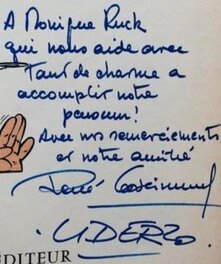 A Monique Ruck
qui nous aide avec
tant de charme a
accomplir notre
pensum!
Avec nos remerciements
et notre amitié
René Goscinny
UDERZO
ÉDITEUR